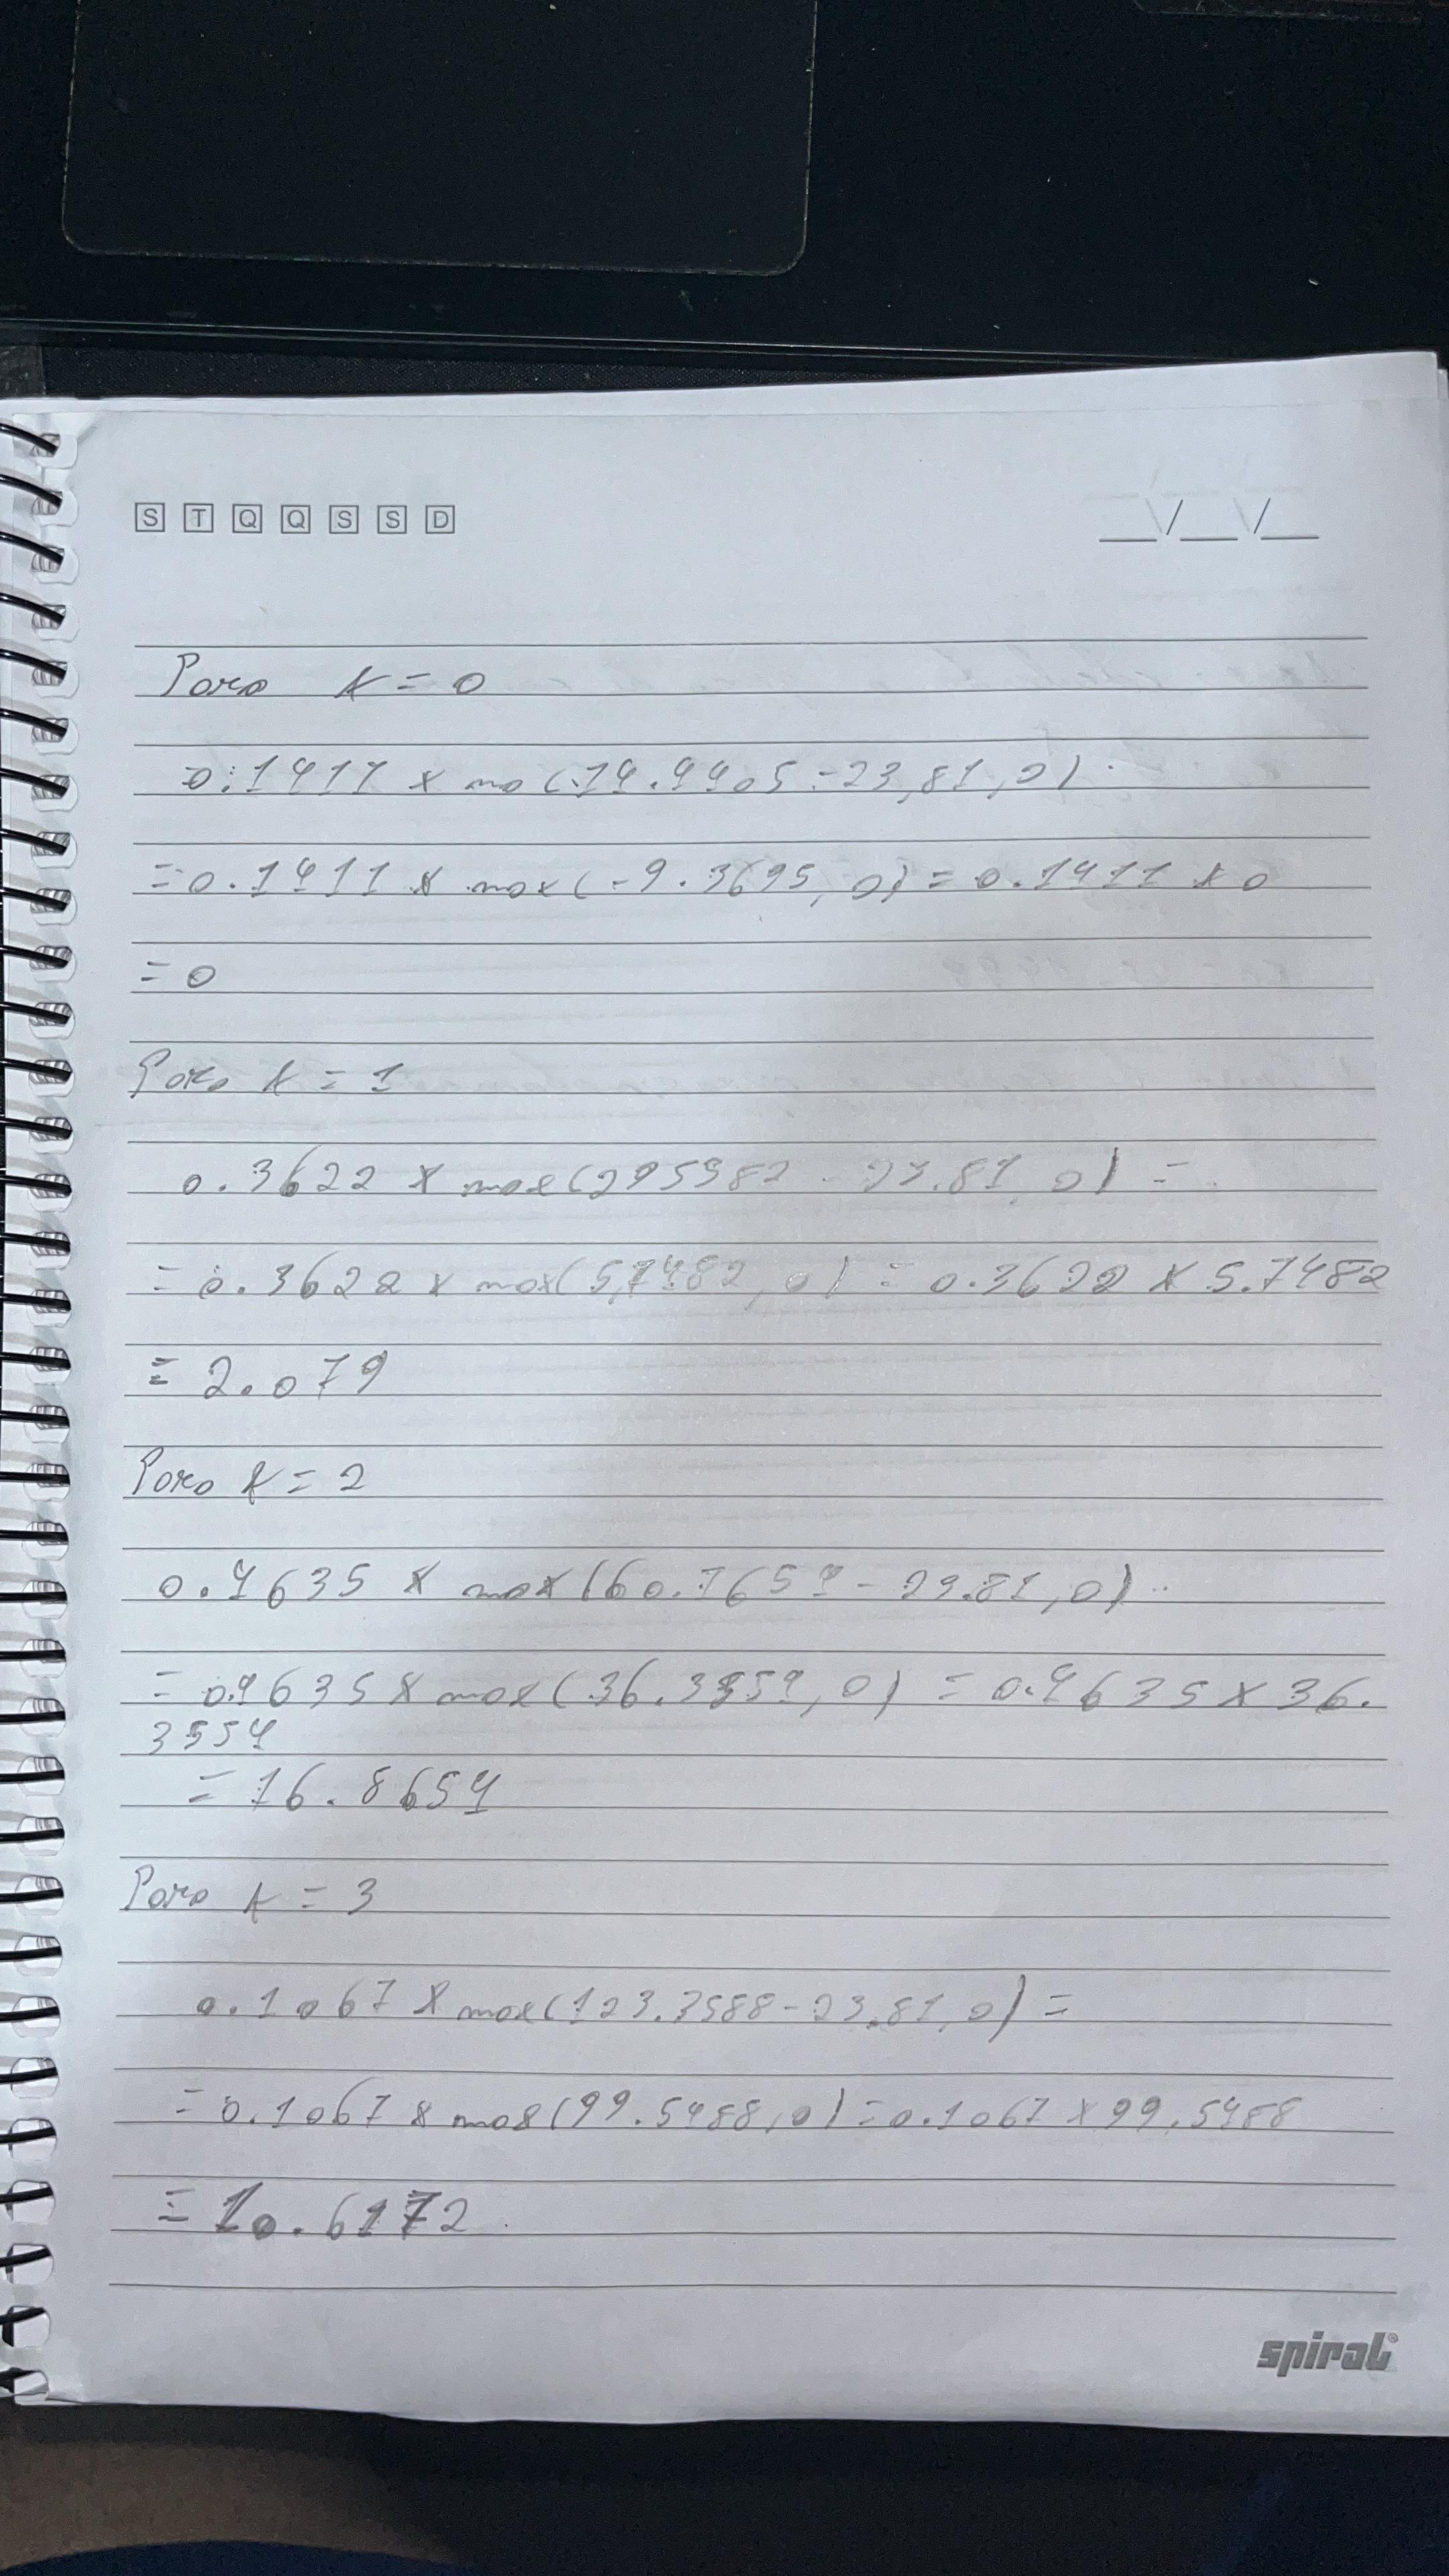 S T Q Q S S D
__/__/__
Para k = 0
0.1411 x ma(14.4405-23,81,0)
= 0.1411 x max(-9.3695, 0) = 0.1411 x 0
= 0
Para k = 1
0.3622 x max(295582 - 23.81, 0) =
= 0.3622 x max(5,7482, 0) = 0.3622 x 5.7482
= 2.079
Para k = 2
0.4635 x max(60.1654 - 23.81, 0)
= 0.4635 x max(36.3554, 0) = 0.4635 x 36.
3554
= 16.8654
Para k = 3
0.1067 x max(123.3588-23.81, 0) =
= 0.1067 x max(99.5488, 0) = 0.1067 x 99.5488
= 10.6172
spiral®